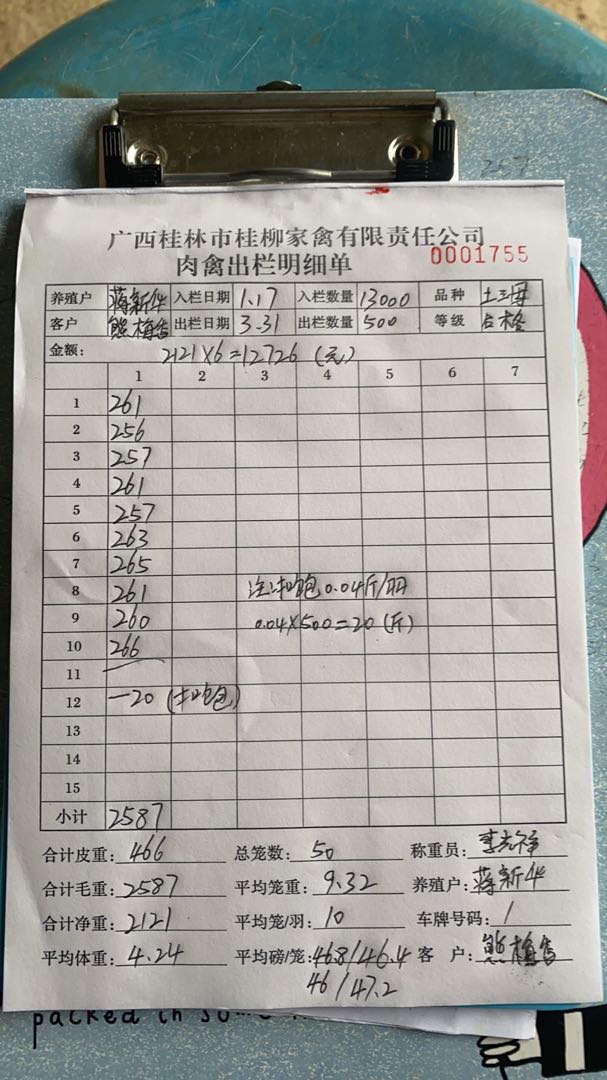 257
广西桂林市桂柳家禽有限责任公司
肉禽出栏明细单 0001755
养殖户 蒋新华 入栏日期 1.17 入栏数量 13000 品种 土三母
客户 熊梅香 出栏日期 3.31 出栏数量 500 等级 合格
金额: 2121×6=12726 (元)
1 2 3 4 5 6 7
1 261
2 256
3 257
4 261
5 257
6 263
7 265
8 261 注:扣饱 0.04斤/羽
9 260 0.04×500=20 (斤)
10 266
11
12 -20 (扣饱)
13
14
15
小计 2587
合计皮重: 466 总笼数: 50 称重员:
合计毛重: 2587 平均笼重: 9.32 养殖户: 蒋新华
合计净重: 2121 平均笼/羽: 10 车牌号码: /
平均体重: 4.24 平均磅/笼: 46.8/46.4 客 户: 熊梅香
46/47.2
packed in